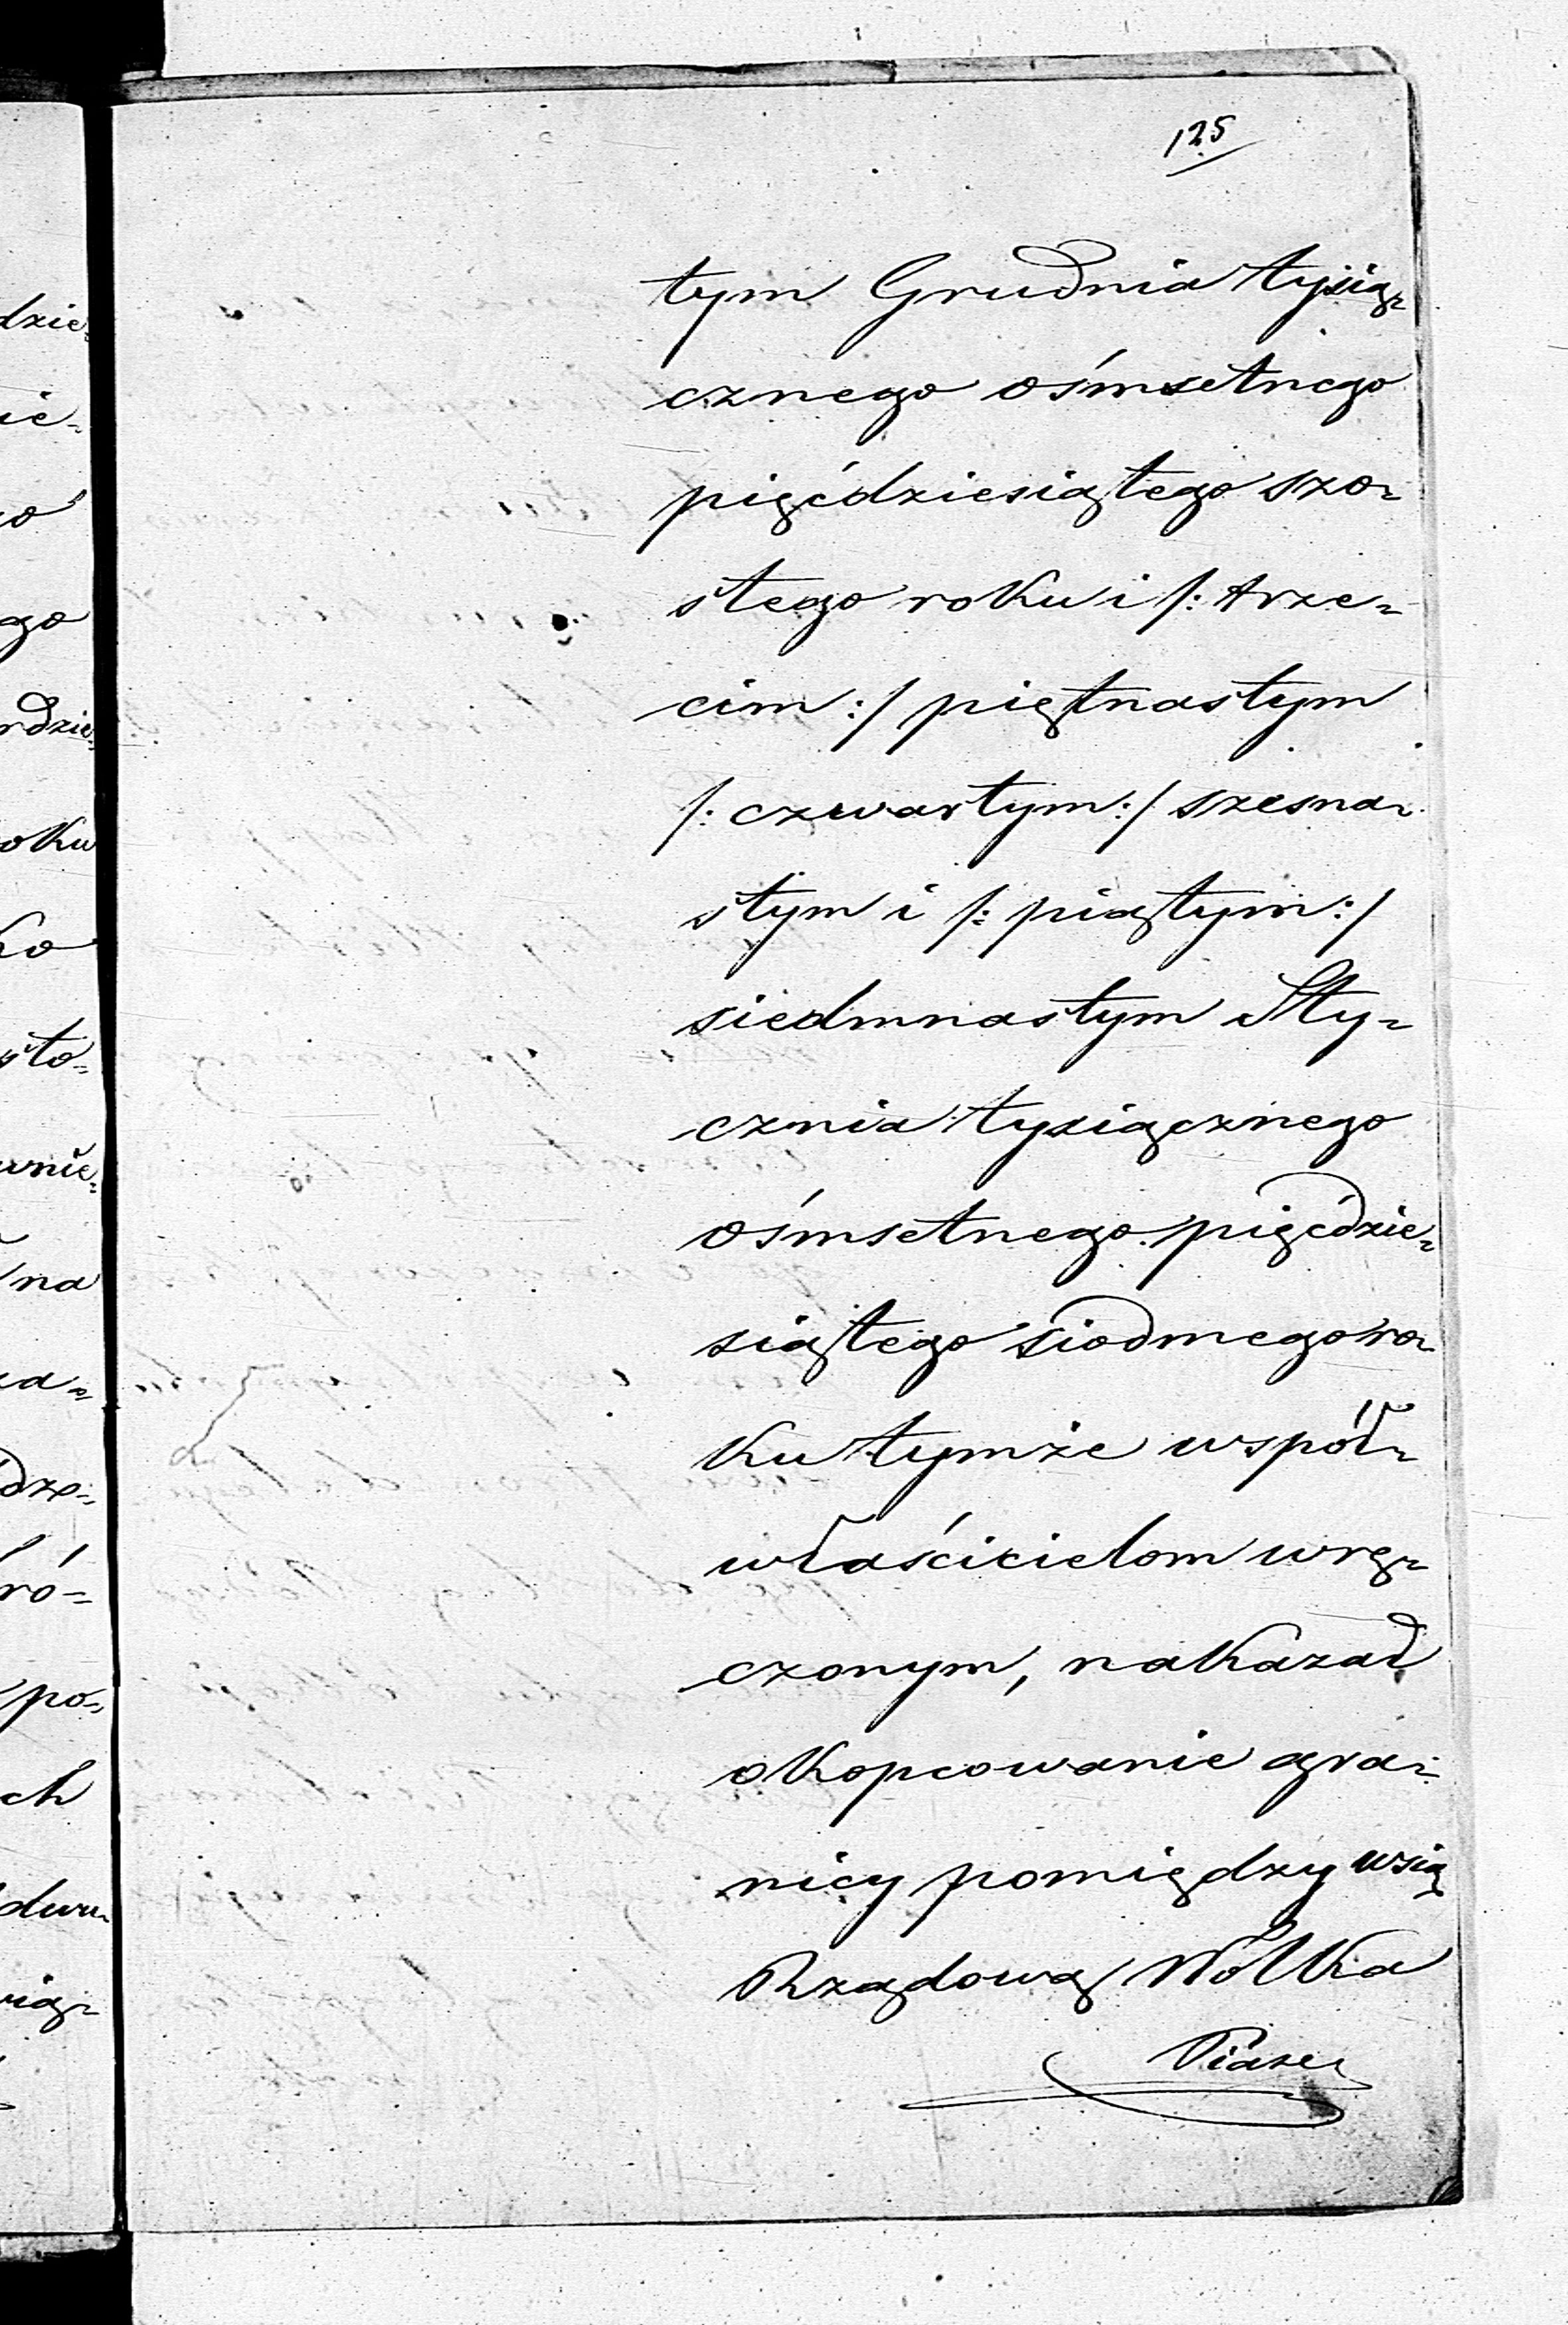 125
tym Grudnia tysią-
cznego ośmsetnego
pięćdziesiątego szo-
stego roku i /: trze-
cim :/ piętnastym
/: czwartym :/ szesna-
stym i /: piątym :/
siedmnastym Sty-
cznia tysiącznego
ośmsetnego pięćdzie-
siątego siodmego ro-
ku tymże współ-
właścicielom wrę-
czonym, nakazał
okopcowanie gra-
nicy pomiędzy wsią
Rządową Wólka
Piase